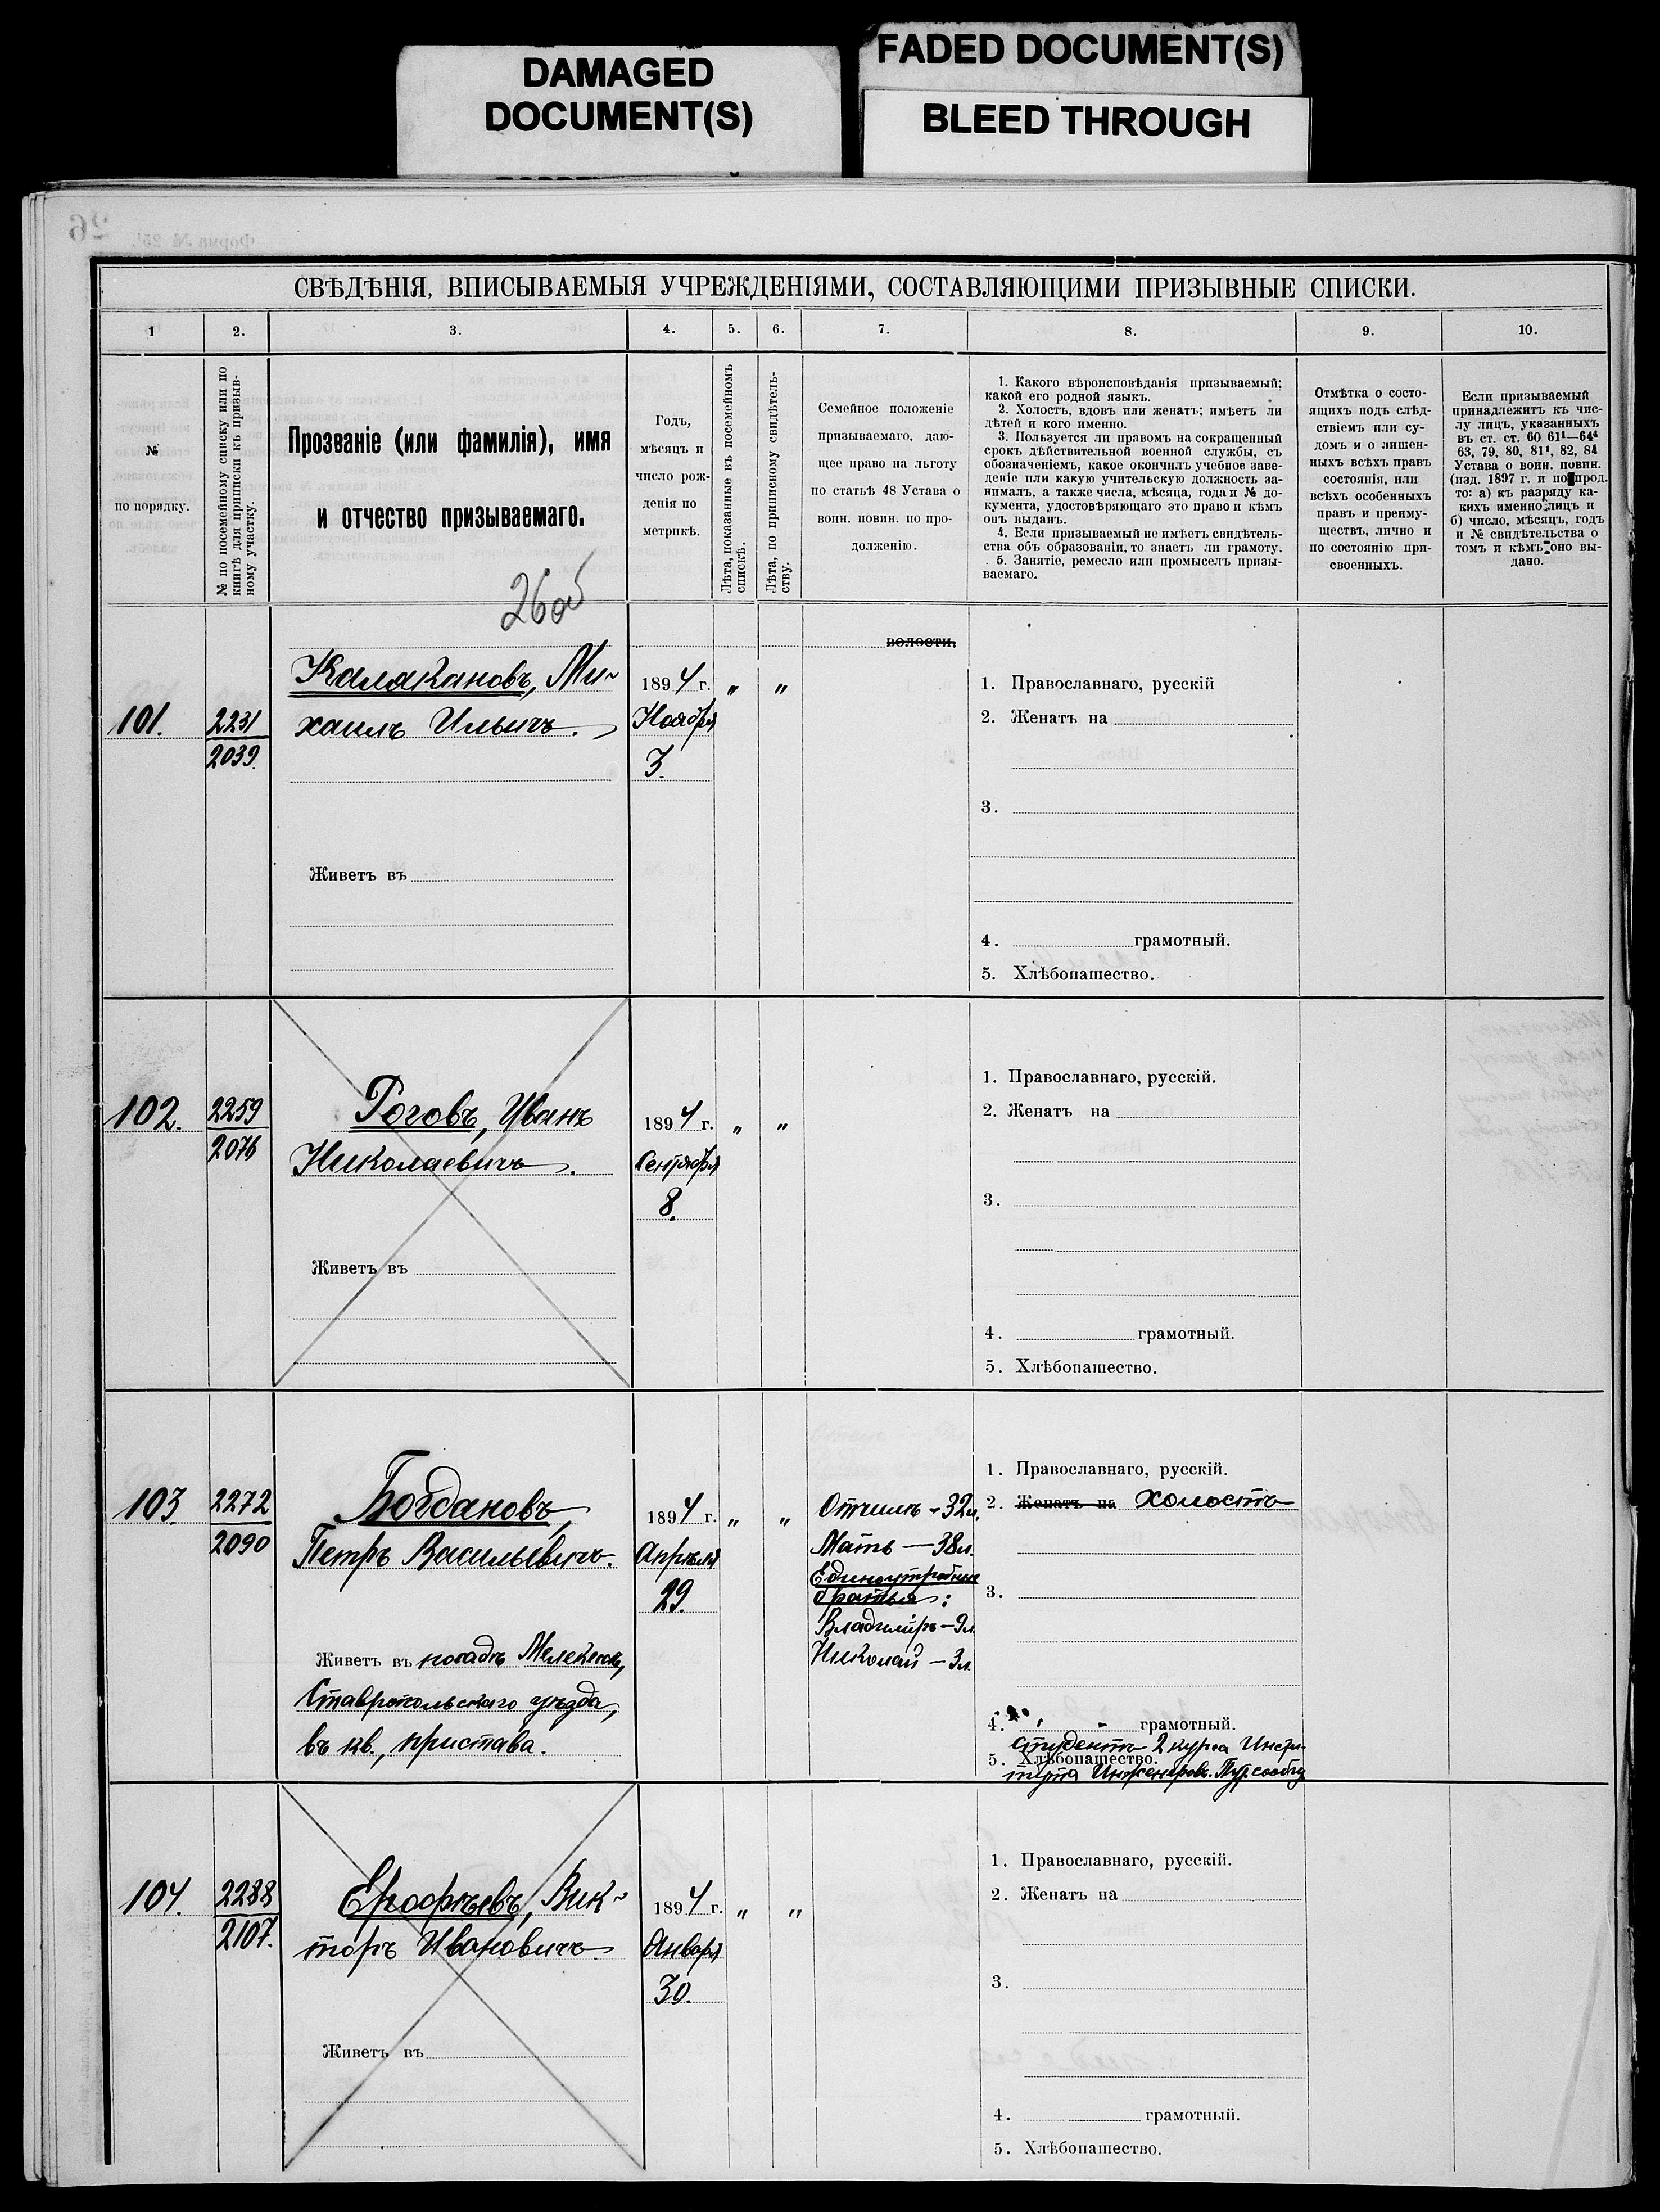 DAMAGED
DOCUMENT(S)
FADED DOCUMENT(S)
BLEED THROUGH
26
СВѢДѢНІЯ, ВПИСЫВАЕМЫЯ УЧРЕЖДЕНІЯМИ, СОСТАВЛЯЮЩИМИ ПРИЗЫВНЫЕ СПИСКИ.
1 2. 3. 4. 5. 6. 7. 8. 9. 10.
№
по порядку.
№ по посемейному списку или по
книгѣ для приписки къ призыв-
ному участку.
Прозваніе (или фамилія), имя
и отчество призываемаго.
26об
Годъ,
мѣсяцъ и
число рож-
денія по
метрикѣ.
Лѣта, показанные въ посемейномъ
спискѣ.
Лѣта, по приписному свидѣтель-
ству.
Семейное положеніе
призываемаго, даю-
щее право на льготу
по статьѣ 48 Устава о
воин. повин. по про-
долженію.
1. Какого вѣроисповѣданія призываемый;
какой его родной языкъ.
2. Холостъ, вдовъ или женатъ; имѣетъ ли
дѣтей и кого именно.
3. Пользуется ли правомъ на сокращенный
срокъ дѣйствительной военной службы, съ
обозначеніемъ, какое окончилъ учебное заве-
деніе или какую учительскую должность за-
нималъ, а также числа, мѣсяца, года и № до-
кумента, удостовѣряющаго это право и кѣмъ
онъ выданъ.
4. Если призываемый не имѣетъ свидѣтель-
ства объ образованіи, то знаетъ ли грамоту.
5. Занятіе, ремесло или промыселъ призы-
ваемаго.
Отмѣтка о состо-
ящихъ подъ слѣд-
ствіемъ или су-
домъ и о лишен-
ныхъ всѣхъ правъ
состоянія, или
всѣхъ особенныхъ
правъ и преиму-
ществъ, лично и
по состоянію при-
своенныхъ.
Если призываемый
принадлежитъ къ чис-
лу лицъ, указанныхъ
въ ст. ст. 60 61¹—64⁴
63, 79, 80, 81¹, 82, 84
Устава о воин. повин.
(изд. 1897 г. и по прод.
то: а) къ разряду ка-
кихъ именно лицъ и
б) число, мѣсяцъ, годъ
и № свидѣтельства о
томъ и кѣмъ оно вы-
дано.
волости.
101. 2231
2039.
Калякановъ, Ми-
хаилъ Ильичъ.
Живетъ въ
1894 г. „ „
Ноября
3.
1. Православнаго, русскій
2. Женатъ на
3.
4. грамотный.
5. Хлѣбопашество.
102. 2259
2076
Роговъ, Иванъ
Николаевичъ.
Живетъ въ
1894 г. „ „
Сентября
8.
1. Православнаго, русскій.
2. Женатъ на
3.
4. грамотный.
5. Хлѣбопашество.
103. 2272
2090
Богдановъ,
Петръ Васильевичъ.
Живетъ въ посадѣ Мелекессъ,
Ставропольскаго уѣзда,
въ кв. пристава.
1894 г. „ „
Апрѣля
29.
Отчимъ - 32л.
Мать — 38л.
Единоутробные
братья:
Владиміръ - 9л.
Николай — 3л.
1. Православнаго, русскій.
2. Женатъ на холостъ
3.
4. грамотный.
студентъ 2 курса Инсти-
5. Хлѣбопашество.
тута Инженеровъ Пут. сообщ
104. 2288
2107.
Ерофѣевъ, Вик-
торъ Ивановичъ.
Живетъ въ
1894 г. „ „
Января
30.
1. Православнаго, русскій.
2. Женатъ на
3.
4. грамотный.
5. Хлѣбопашество.